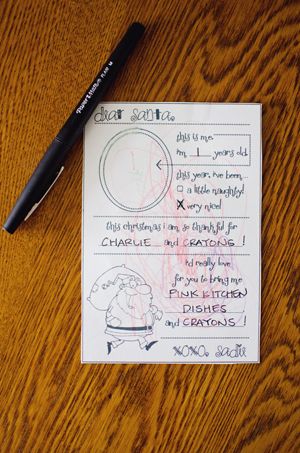 dear santa,
this is me.
i'm 1 years old.
this year, i've been...
a little naughty!
X very nice!
this christmas i am so thankful for
CHARLIE and CRAYONS!
i'd really love
for you to bring me
PINK KITCHEN
DISHES
and CRAYONS!
xoxo, sadie
Paper Mate